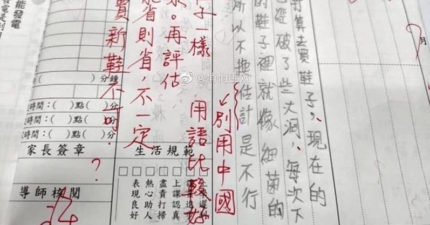 打算去買鞋子,現在的
已經破了些大洞,每次下
的鞋子裡就像細菌的
所以不換估計是不行
↓別用中國
用語比較好
子一樣
。再評估
能省則省,不一定
買新鞋
?
月
能發電
分
時間:( )點( )
時間:( )點( )
家長簽章
導師核閱
生活規範
上課認真
盡責打掃
熱心助人
表現良好